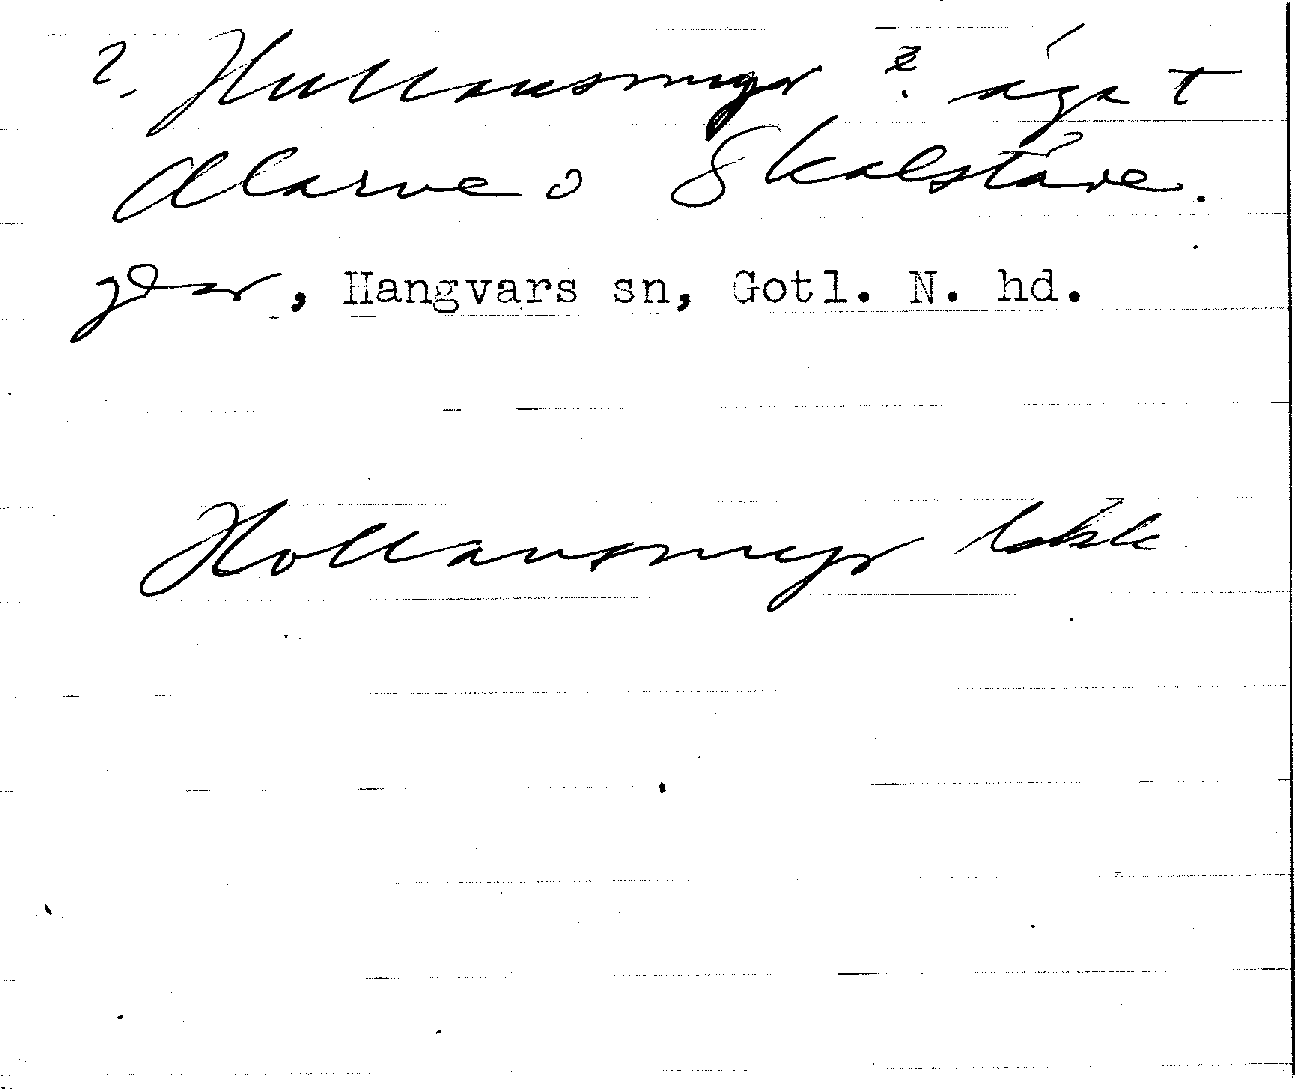 ?. Hullausmyr ?. äga t
Alarve o Skalstäve.
gdar, Hangvars sn, Gotl. N. hd.
Hollausmyr lskk